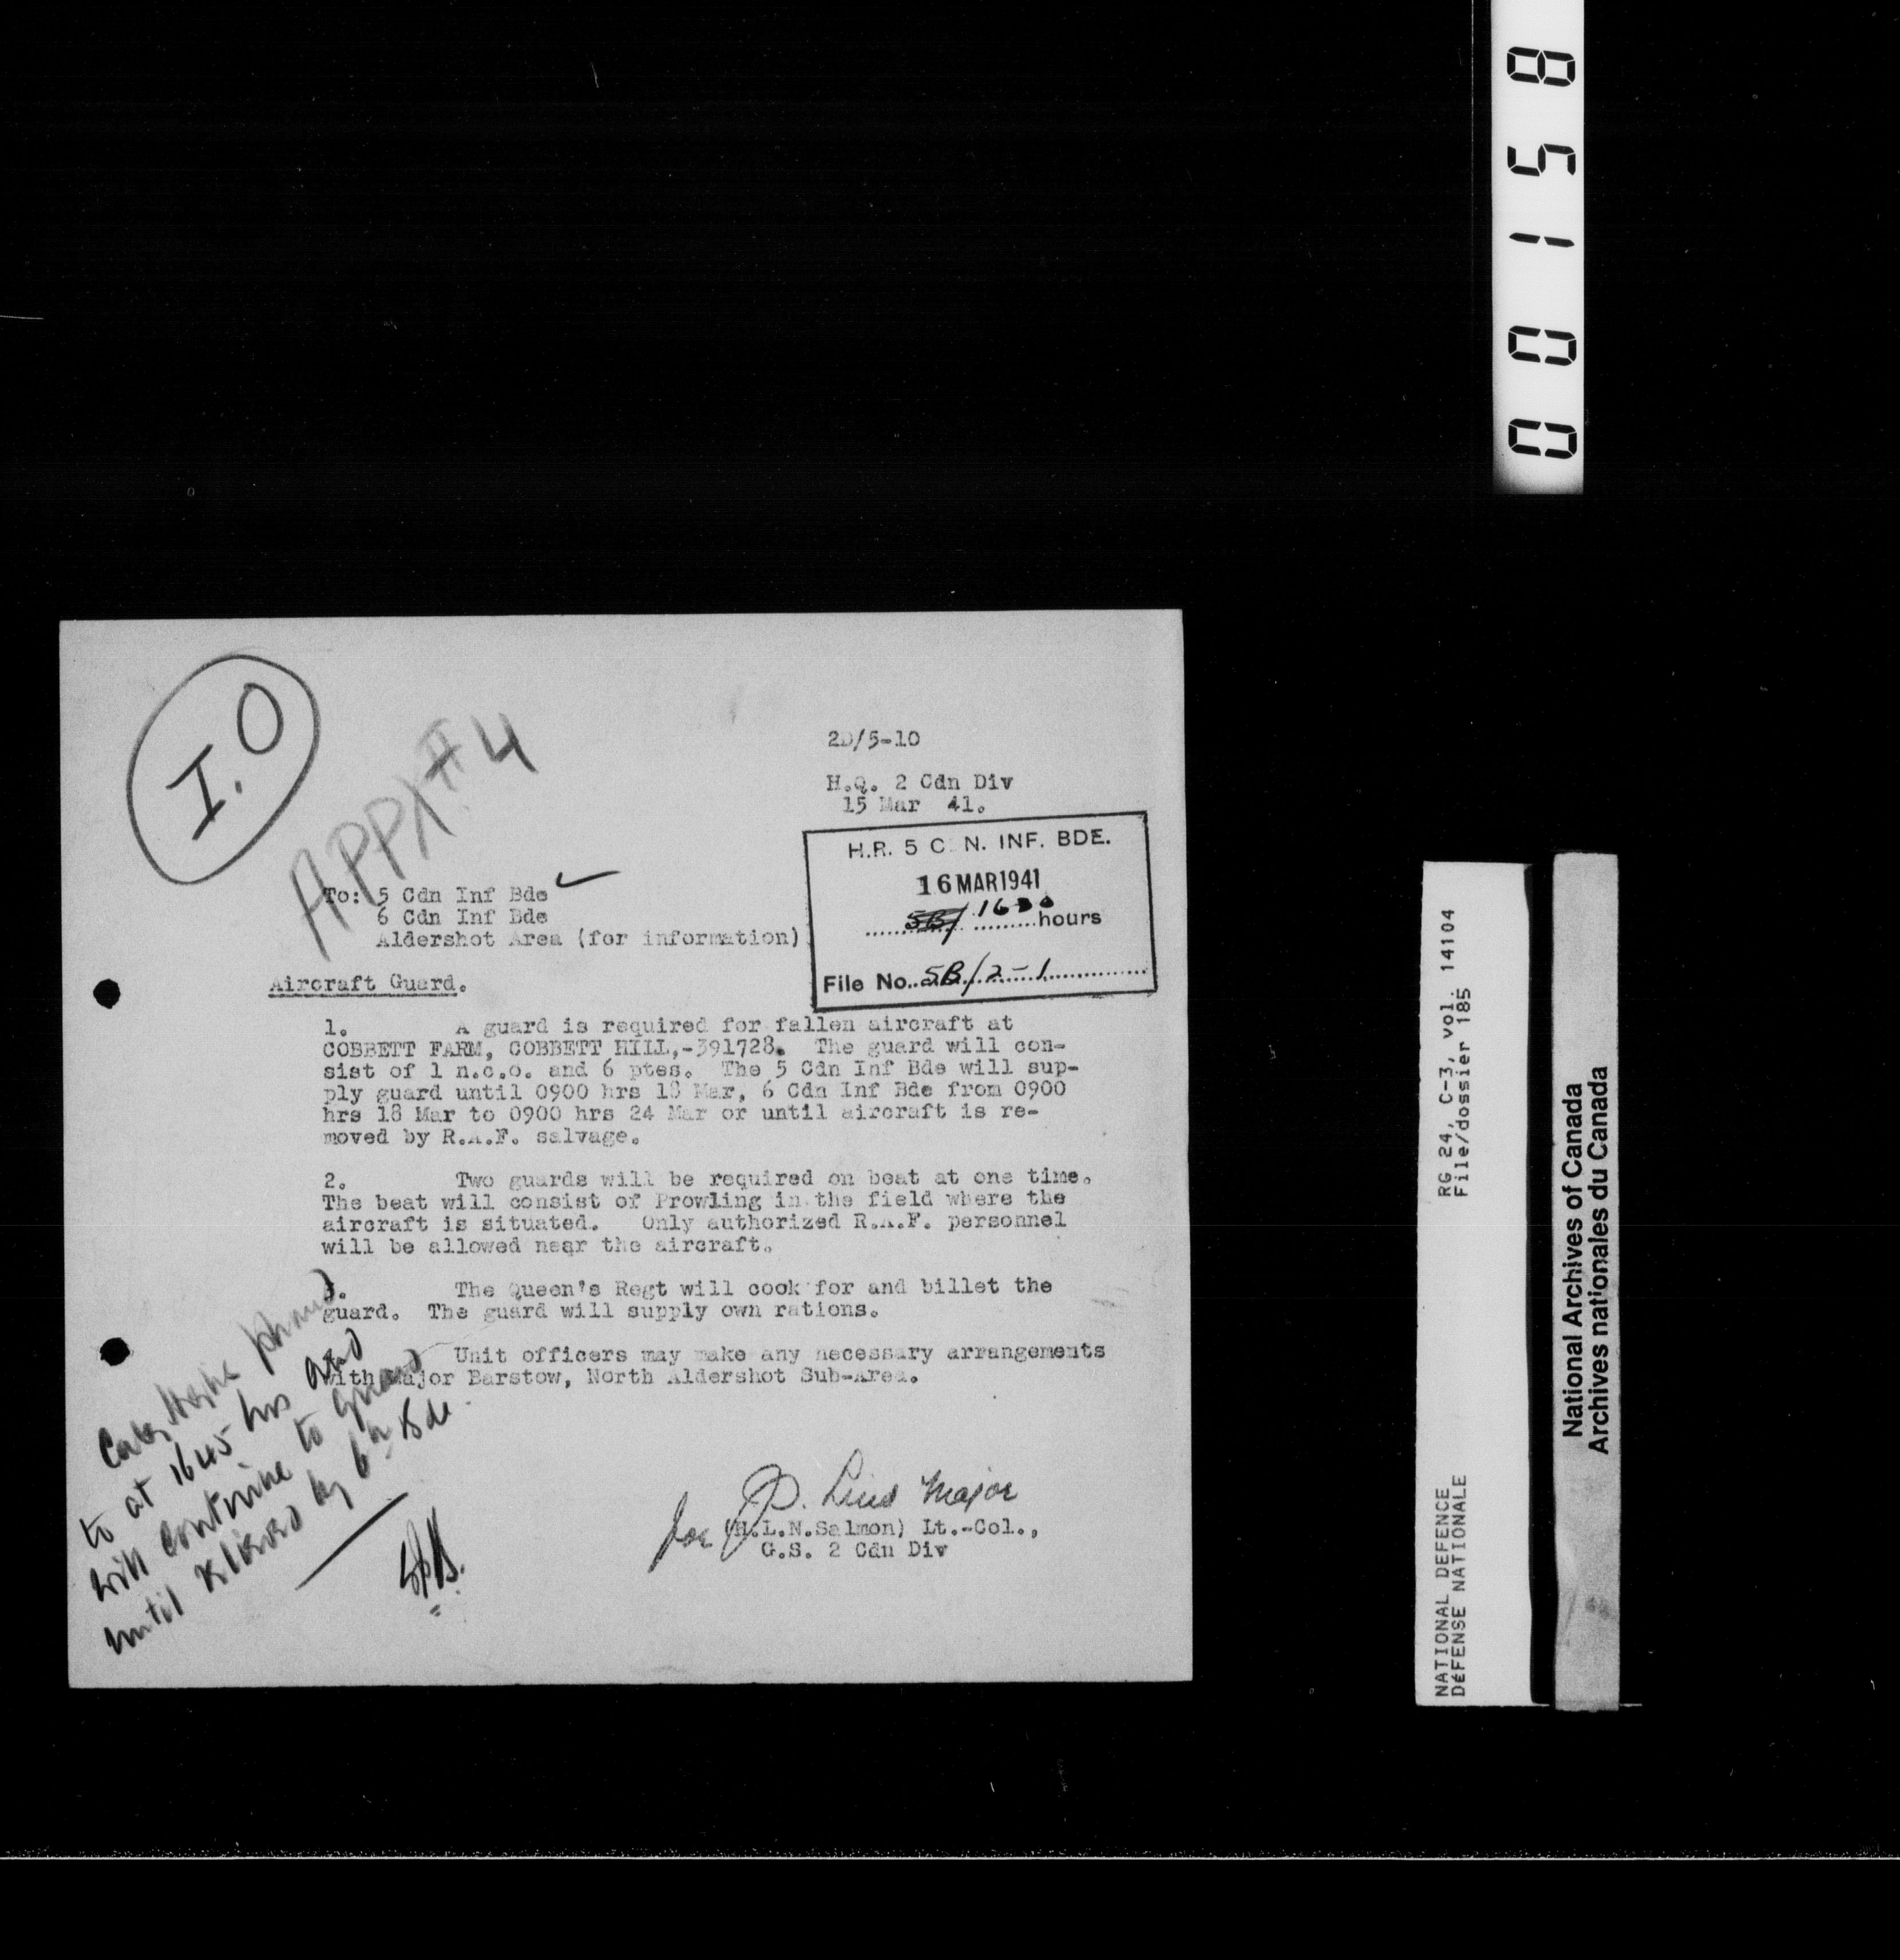 00158
I.O
APPX #4
2D/5-10
H.Q. 2 Cdn Div
15 Mar 41.
H.R. 5 C N. INF. BDE.
16 MAR 1941
5B/ 1630 hours
File No. 5B/2-1
To: 5 Cdn Inf Bde ✓
6 Cdn Inf Bde
Aldershot Area (for information)
Aircraft Guard.
1. A guard is required for fallen aircraft at
COBBETT FARM, COBBETT HILL,-391728. The guard will con-
sist of 1 n.c.o. and 6 ptes. The 5 Cdn Inf Bde will sup-
ply guard until 0900 hrs 18 Mar, 6 Cdn Inf Bde from 0900
hrs 18 Mar to 0900 hrs 24 Mar or until aircraft is re-
moved by R.A.F. salvage.
2. Two guards will be required on beat at one time.
The beat will consist of Prowling in the field where the
aircraft is situated. Only authorized R.A.F. personnel
will be allowed near the aircraft.
3. The Queen's Regt will cook for and billet the
guard. The guard will supply own rations.
Unit officers may make any necessary arrangements
with Major Barstow, North Aldershot Sub-Area.
phoned
to at 1645 hrs and
will continue to guard
until relieved by 6th Bde.
for P. Major
(H.L.N.Salmon) Lt.-Col.,
G.S. 2 Cdn Div
NATIONAL DEFENCE RG 24, C-3, vol. 14104
DéFENSE NATIONALE File/dossier 185
National Archives of Canada
Archives nationales du Canada